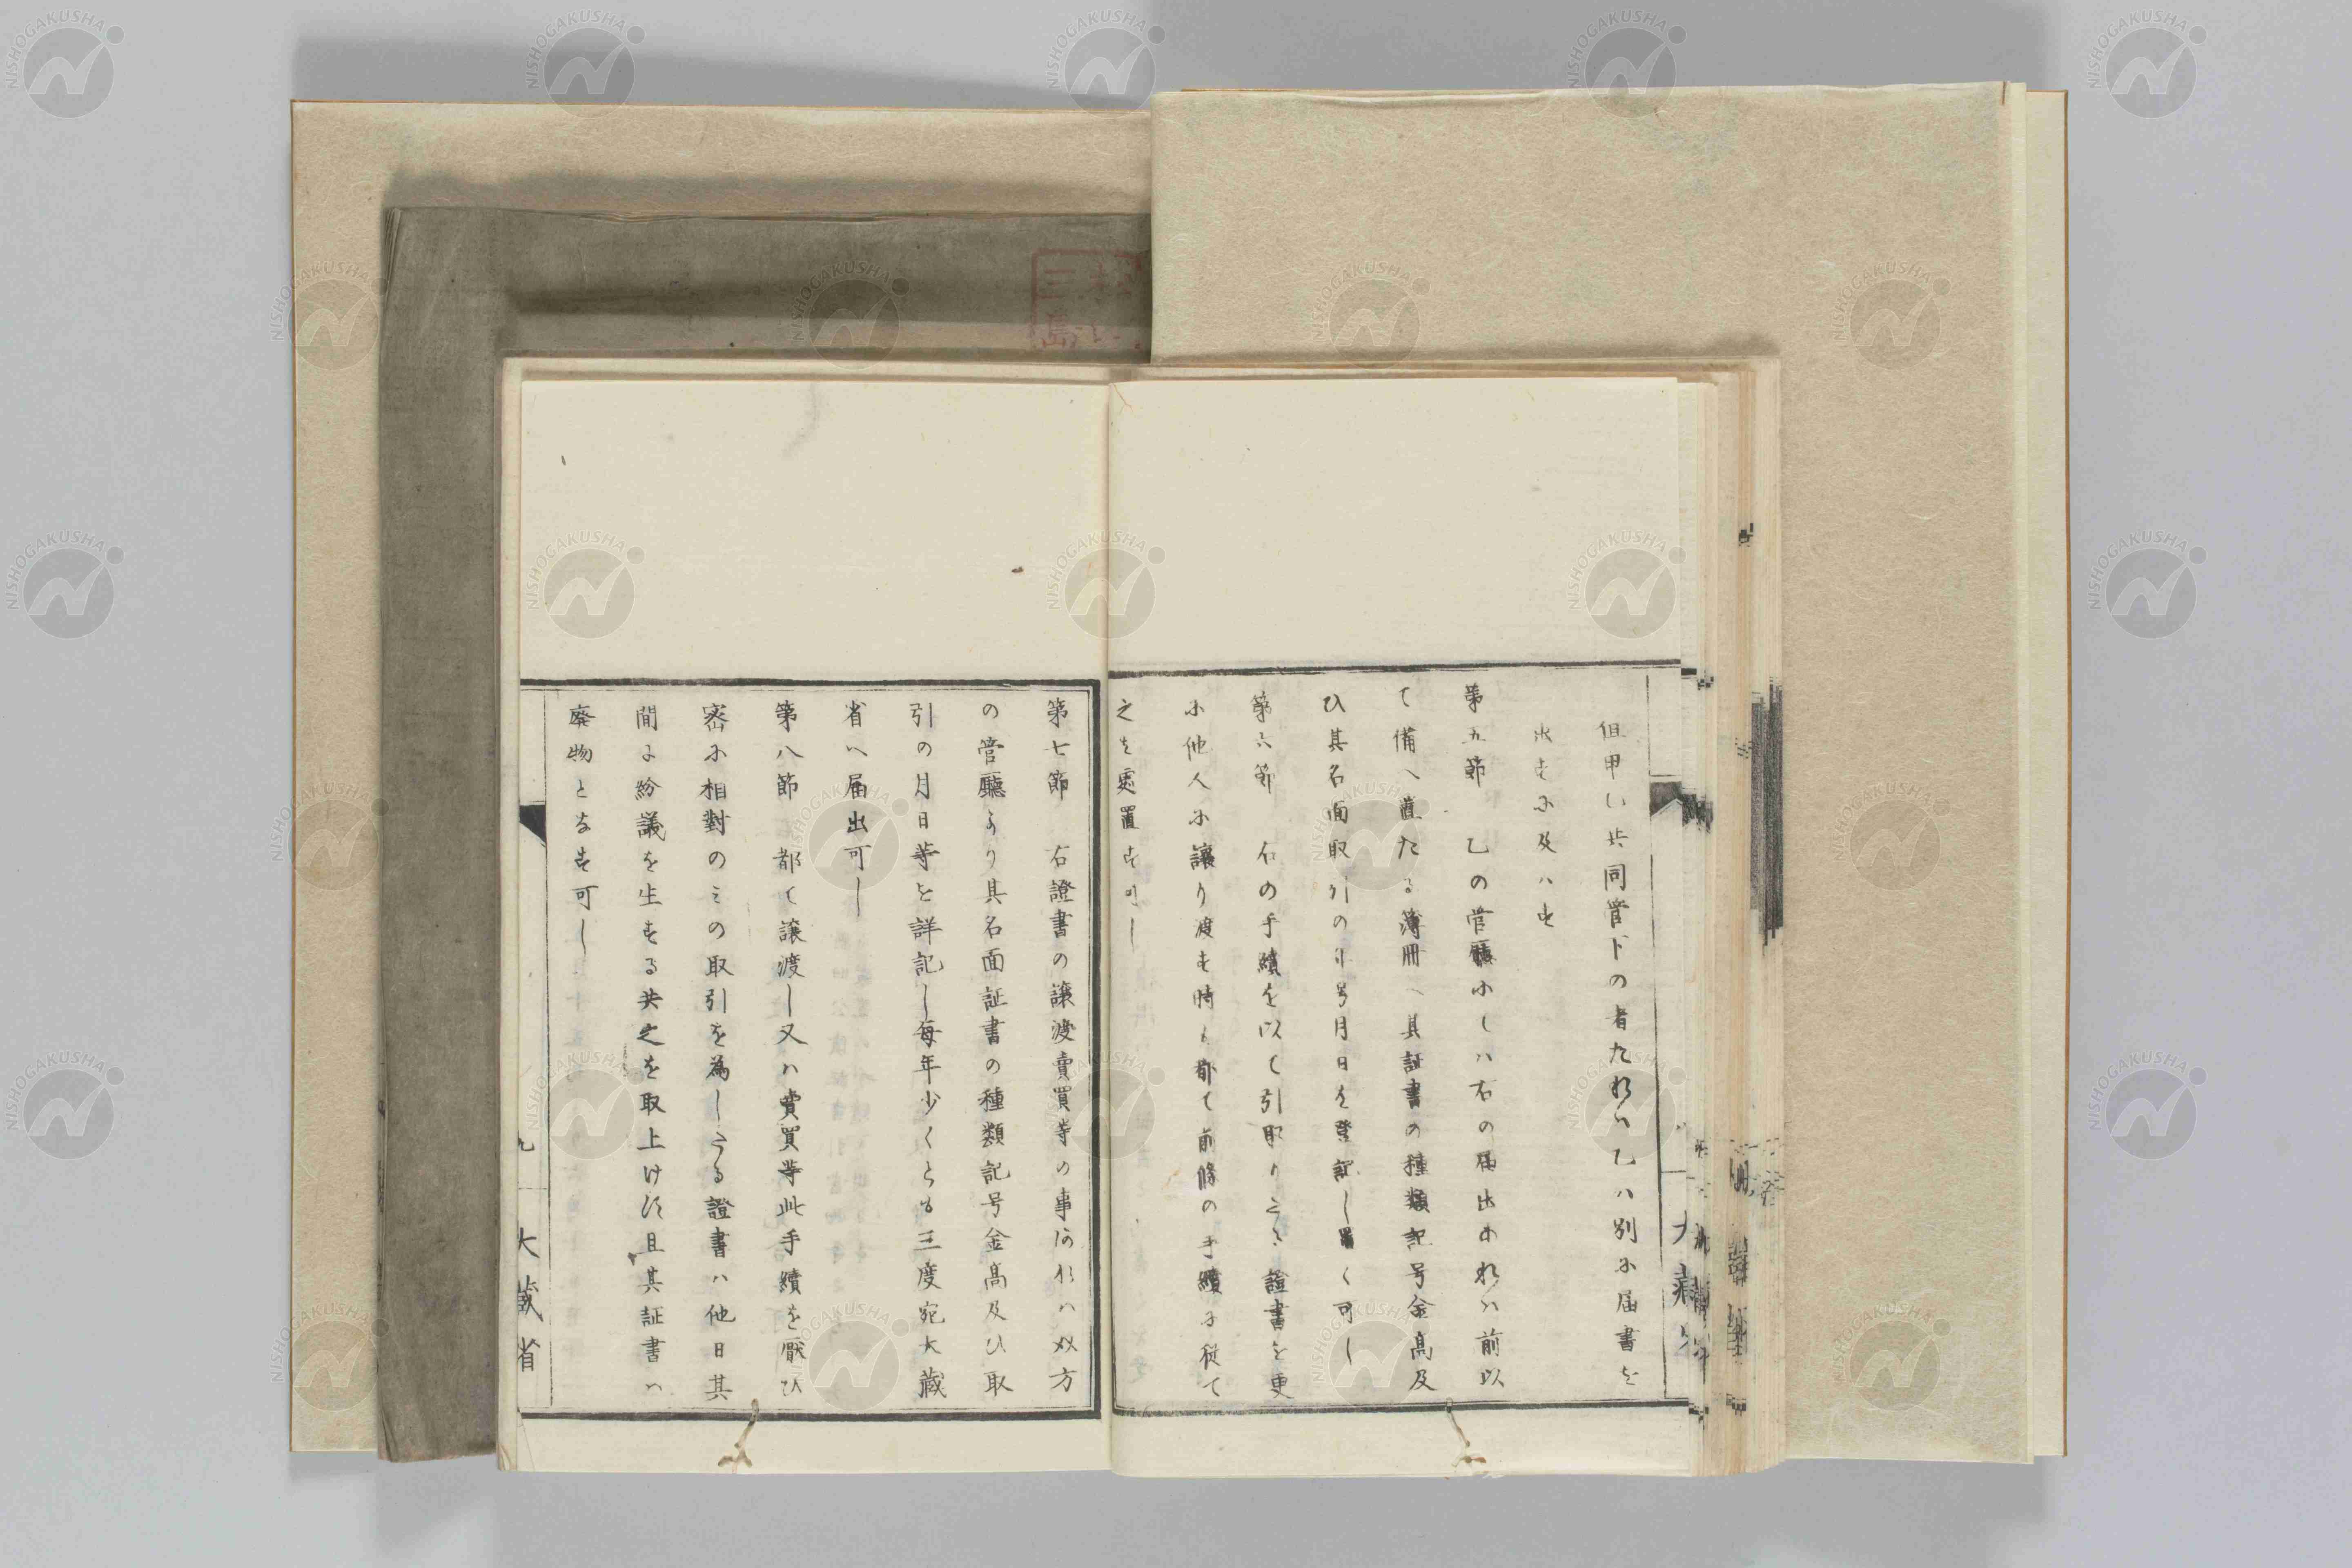 但甲乙共同管下の者たれハ乙ハ別に届書を
出すに及ハす
第五節 乙の管廳にしハ右の届出あれハ前以
て備へ置たる簿冊へ其証書の種類記号金高及
ひ其名面取引の年号月日を登記し置く可し
第六節 右の手續を以て引取りたる證書を更
に他人に讓り渡す時も都て前條の手續に従て
之を處置す可し
第七節 右證書の讓渡賣買等の事あれハ双方
の管廳より其名面証書の種類記号金高及ひ取
引の月日等を詳記し毎年少くとも三度宛大蔵
省へ届出可し
第八節 都て讓渡し又ハ賣買等此手續を厭ひ
密に相對のミの取引を為したる證書ハ他日其
間に紛議を生する共之を取上けす且其証書ハ
廃物となす可し
九
大藏省
NISHOGAKUSHA